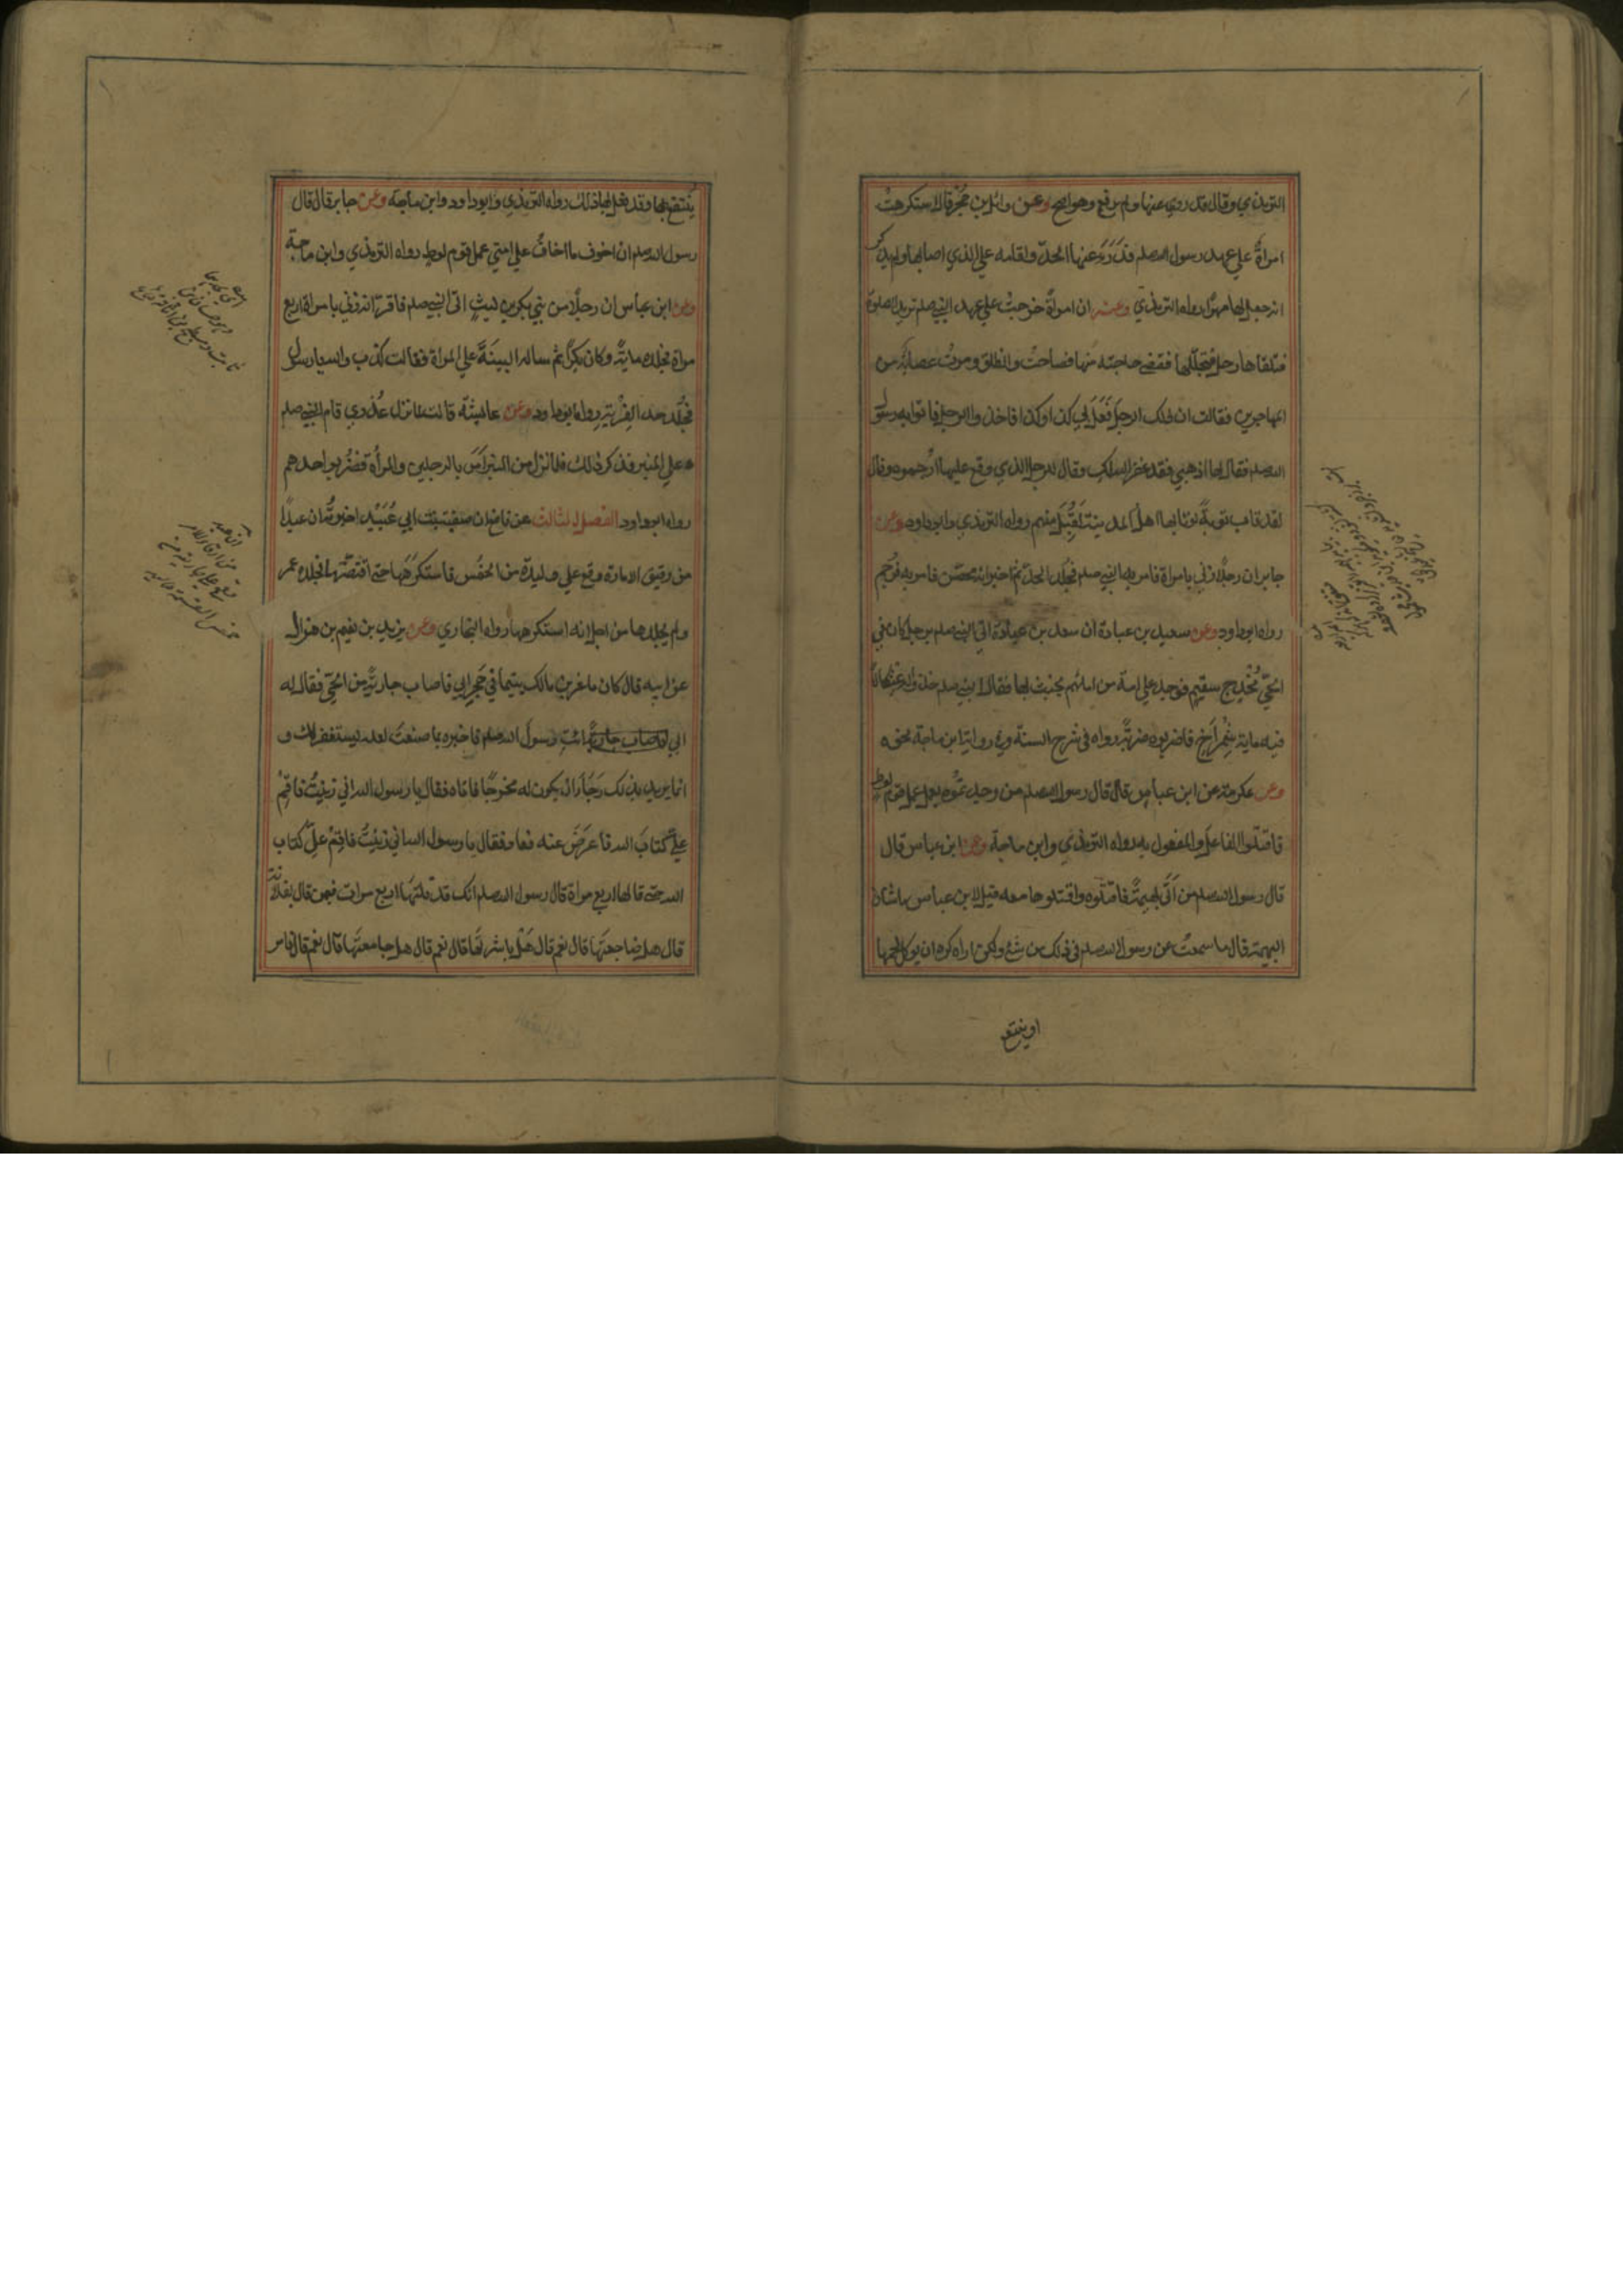 الترمذي وقال قد روي عنها ولم يرفع وهو اصح وعن وائل بن حجر قال استكرهت
امراة علي عهد رسول الله صلعم فدرء عنها الحد ولقامه علي الذي اصابها ولم يذكر
انه جعل لها مهرا رواه الترمذي وعنه ان امراة خرجت علي عهد النبي صلعم تريد الصلوة
فتلقاها رجل فتجللها فقضي حاجته منها فصاحت وانطلق ومرت عصابة من
المهاجرين فقالت ان ذلك الرجل فعل بي كذا وكذا فاخذوا الرجل فاتوا به رسول
الله صلعم فقال لها اذهبي فقد غفر الله لك وقال للرجل الذي وقع عليها ارجموه وقال
لقد تاب توبة لو تابها اهل المدينة لقبل منهم رواه الترمذي وابو داود وعن
جابر ان رجلا زني بامراة فامر به النبي صلعم فجلد الحد ثم اخبر انه محصن فامر به فرجم
رواه ابو داود وعن سعيد بن عبادة ان سعد بن عبادة اتي النبي صلعم برجل كان في
الحي مخدج سقيم فوجد علي امة من امائهم يخبث بها فقال النبي صلعم خذوا له عثكالا
فيه ماية شمراخ فاضربوه ضربة رواه في شرح السنة وفي رواية ابن ماجة نحوه
وعن عكرمة عن ابن عباس قال قال رسول الله صلعم من وجد تموه يعمل عمل قوم لوط
فاقتلوا الفاعل والمفعول به رواه الترمذي وابن ماجة وعن ابن عباس قال
قال رسول الله صلعم من اتي بهيمة فاقتلوه واقتلوها معه قيل لابن عباس ما شان
البهيمة قال ما سمعت من رسول الله صلعم في ذلك من شئ ولكن اراه كره ان يوكل لحمها
او ينتفع
ينتفع بها وقد فعل بها ذلك رواه الترمذي وابو داود وابن ماجة وعن جابر قال قال
رسول الله صلعم ان اخوف ما اخاف علي امتي عمل قوم لوط رواه الترمذي وابن ماجة
وعن ابن عباس ان رجلا من بني بكر بن ليث اتي النبي صلعم فاقر انه زني بامراة اربع
مراة فجلده ماية وكان بكرا ثم ساله البينة علي المراة فقالت كذب والله يا رسول
فجلد حد الفرية رواه ابو داود وعن عايشة قالت لما نزل عذري قام النبي صلعم
علي المنبر فذكر ذلك فلما نزل من المنبر امر بالرجلين والمراة فضربوا حدهم
رواه ابو داود الفصل الثالث عن نافع ان صفية بنت ابي عبيد اخبرته ان عبدا
من رقيق الامارة وقع علي وليدة من الخمس فاستكرهها حتي اقتضها فجلده عمر
ولم يجلدها من اجل انه استكرهها رواه البخاري وعن يزيد بن نعيم بن هزال
عن ابيه قال كان ماعز بن مالك يتيما في حجر ابي فاصاب جارية من الحي فقال له
ابي فاصاب جارية ائت رسول الله صلعم فاخبره بما صنعت لعله يستغفر لك و
انما يريد بذلك رجاء ان يكون له مخرجا فاتاه فقال يا رسول الله اني زنيت فاقم
علي كتاب الله فاعرض عنه فعاد فقال يا رسول الله اني زنيت فاقم علي كتاب
الله حتي قالها اربع مراة قال رسول الله صلعم انك قد قلتها اربع مرات فبمن قال بفلانة
قال هل ضاجعتها قال نعم قال هل باشرتها قال نعم قال هل جامعتها قال نعم قال فامر